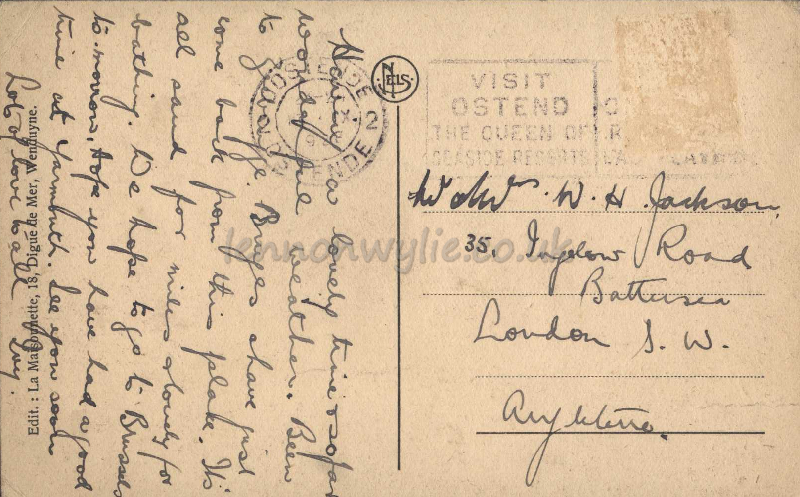 Having a lovely time & so far
wonderful weather. Been
to Bruges & have just
come back from this place. It's
all sand for miles & lovely for
bathing. We hope to go to Brussels
to-morrow, Hope you have had a good
time at Yarmouth. See you soon
Lots of love to all
Edit. : La Maisonnette, 18, Digue de Mer, Wenduyne.
NELS
OOSTENDE
2
OSTENDE
VISIT
OSTEND
THE QUEEN OF
SEASIDE RESORTS
W. H. Jackson,
35. Ingelow Road
Battersea
London S. W.
Angleterre.
lennonwylie.co.uk